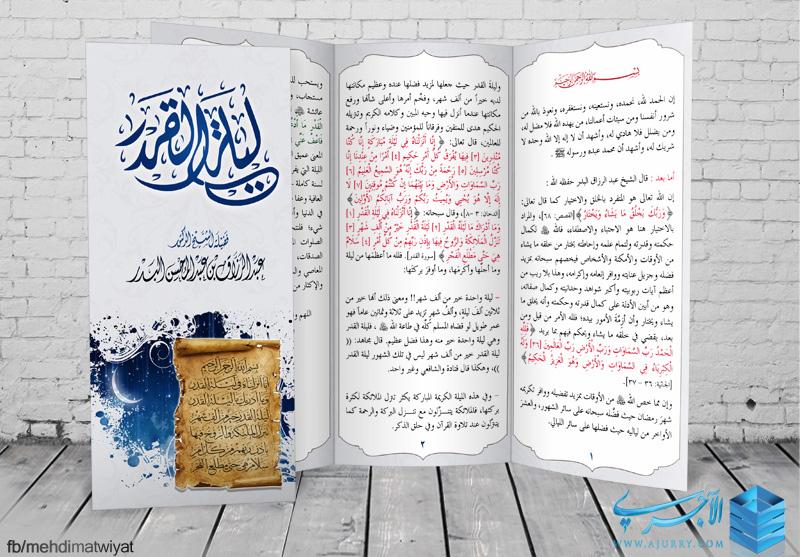 ليلة القدر
فضيلة الشيخ الدكتور
عبد الرزاق بن عبد المحسن البدر
بسم الله الرحمن الرحيم
إنا أنزلناه في ليلة القدر
وما أدراك ما ليلة القدر
ليلة القدر خير من ألف شهر
تنزل الملائكة والروح فيها
بإذن ربهم من كل أمر
سلام هي حتى مطلع الفجر
بسم الله الرحمن الرحيم
إن الحمد لله، نحمده، ونستعينه، ونستغفره، ونعوذ بالله من
شرور أنفسنا ومن سيئات أعمالنا، من يهده الله فلا مضل له،
ومن يضلل فلا هادي له، وأشهد أن لا إله إلا الله وحده لا
شريك له، وأشهد أن محمد عبده ورسوله ﷺ .
أما بعد : قال الشيخ عبد الرزاق البدر حفظه الله :
إن الله تعالى هو المتفرد بالخلق والاختيار كما قال تعالى:
﴿ وَرَبُّكَ يَخْلُقُ مَا يَشَاءُ وَيَخْتَارُ ﴾ [القصص: ٦٨]، والمراد
بالاختيار هنا هو الاجتباء والاصطفاء، فالله لكمال
حكمته وقدرته ولتمام علمه وإحاطته يختار من خلقه ما يشاء
من الأوقات والأمكنة والأشخاص فيخصهم سبحانه بمزيد
فضله وجزيل عنايته ووافر إنعامه وإكرامه، وهذا بلا ريب من
أعظم آيات ربوبيته وأكبر شواهد وحدانيته وكمال صفاته،
وهو من أبين الأدلة على كمال قدرته وحكمته وأنه يخلق ما
يشاء ويختار وأن أزمّة الأمور بيده؛ فلله الأمر من قبل ومن
بعد، يقضي في خلقه ما يشاء ويحكم فيهم بما يريد ﴿ فَلِلَّهِ
الْحَمْدُ رَبِّ السَّمَاوَاتِ وَرَبِّ الْأَرْضِ رَبِّ الْعَالَمِينَ [٣٦] وَلَهُ
الْكِبْرِيَاءُ فِي السَّمَاوَاتِ وَالْأَرْضِ وَهُوَ الْعَزِيزُ الْحَكِيمُ ﴾
[الجاثية: ٣٦ - ٣٧].
وإن مما خص الله من الأوقات بمزيد تفضيله ووافر تكريمه
شهرَ رمضان حيث فضّله سبحانه على سائر الشهور، والعشرَ
الأواخر من لياليه حيث فضلها على سائر الليالي.
١
وليلة القدر حيث جعلها لمزيد فضلها عنده وعظيم مكانتها
لديه خيراً من ألف شهر، وفخّم أمرها وأعلى شأنها ورفع
مكانتها عندما أنزل فيها وحيه المبين وكلامه الكريم وتنزيله
الحكيم هدى للمتقين وفرقاناً للمؤمنين وضياء ونوراً ورحمة
للعالمين، قال تعالى: ﴿ إِنَّا أَنْزَلْنَاهُ فِي لَيْلَةٍ مُبَارَكَةٍ إِنَّا كُنَّا
مُنْذِرِينَ [٣] فِيهَا يُفْرَقُ كُلُّ أَمْرٍ حَكِيمٍ [٤] أَمْرًا مِنْ عِنْدِنَا إِنَّا
كُنَّا مُرْسِلِينَ [٥] رَحْمَةً مِنْ رَبِّكَ إِنَّهُ هُوَ السَّمِيعُ الْعَلِيمُ [٦]
رَبِّ السَّمَاوَاتِ وَالْأَرْضِ وَمَا بَيْنَهُمَا إِنْ كُنْتُمْ مُوقِنِينَ [٧] لَا
إِلَهَ إِلَّا هُوَ يُحْيِي وَيُمِيتُ رَبُّكُمْ وَرَبُّ آبَائِكُمُ الْأَوَّلِينَ ﴾
[الدخان: ٣ -٨]، وقال سبحانه: ﴿ إِنَّا أَنْزَلْنَاهُ فِي لَيْلَةِ الْقَدْرِ [١]
وَمَا أَدْرَاكَ مَا لَيْلَةُ الْقَدْرِ [٢] لَيْلَةُ الْقَدْرِ خَيْرٌ مِنْ أَلْفِ شَهْرٍ [٣]
تَنَزَّلُ الْمَلَائِكَةُ وَالرُّوحُ فِيهَا بِإِذْنِ رَبِّهِمْ مِنْ كُلِّ أَمْرٍ [٤] سَلَامٌ
هِيَ حَتَّى مَطْلَعِ الْفَجْرِ ﴾ [سورة القدر]. فلله ما أعظمها من ليلة
وما أجلّها وأكرمها، وما أوفرَ بركتها:
- ليلة واحدة خير من ألف شهر!! ومعنى ذلك أنها خير من
ثلاثين ألف ليلة، وألف شهر تزيد على ثلاثة وثمانين عاماً فهو
عمر طويل لو قضاه المسلم كلّه في طاعة الله ، فليلة القدر
وهي ليلة واحدة خير منه وهذا فضل عظيم. قال مجاهد: ((
ليلة القدر خير من ألف شهر ليس في تلك الشهور ليلة القدر
))، وهكذا قال قتادة والشافعي وغير واحد.
- وفي هذه الليلة الكريمة المباركة يكثر تنزل الملائكة لكثرة
بركتها، فالملائكة يتنزّلون مع تنزل البركة والرحمة كما
يتنزلون عند تلاوة القرآن وفي حلق الذكر.
٢
ويستحب لل
مستحاب، و
عائشة
الْقَدْرِ مَا
فَاعْفُ عَنِّي
المعنى عميق
الليلة التي يفر
لسنة كاملة
العافية وعفا
في الدنيا وأ
شيء؛ فلنت
الصلوات
الصدقات،
المعاصي وال
والإكثار من
اللهم و
الآجري
WWW.AJURRY.COM
fb/mehdimatwiyat